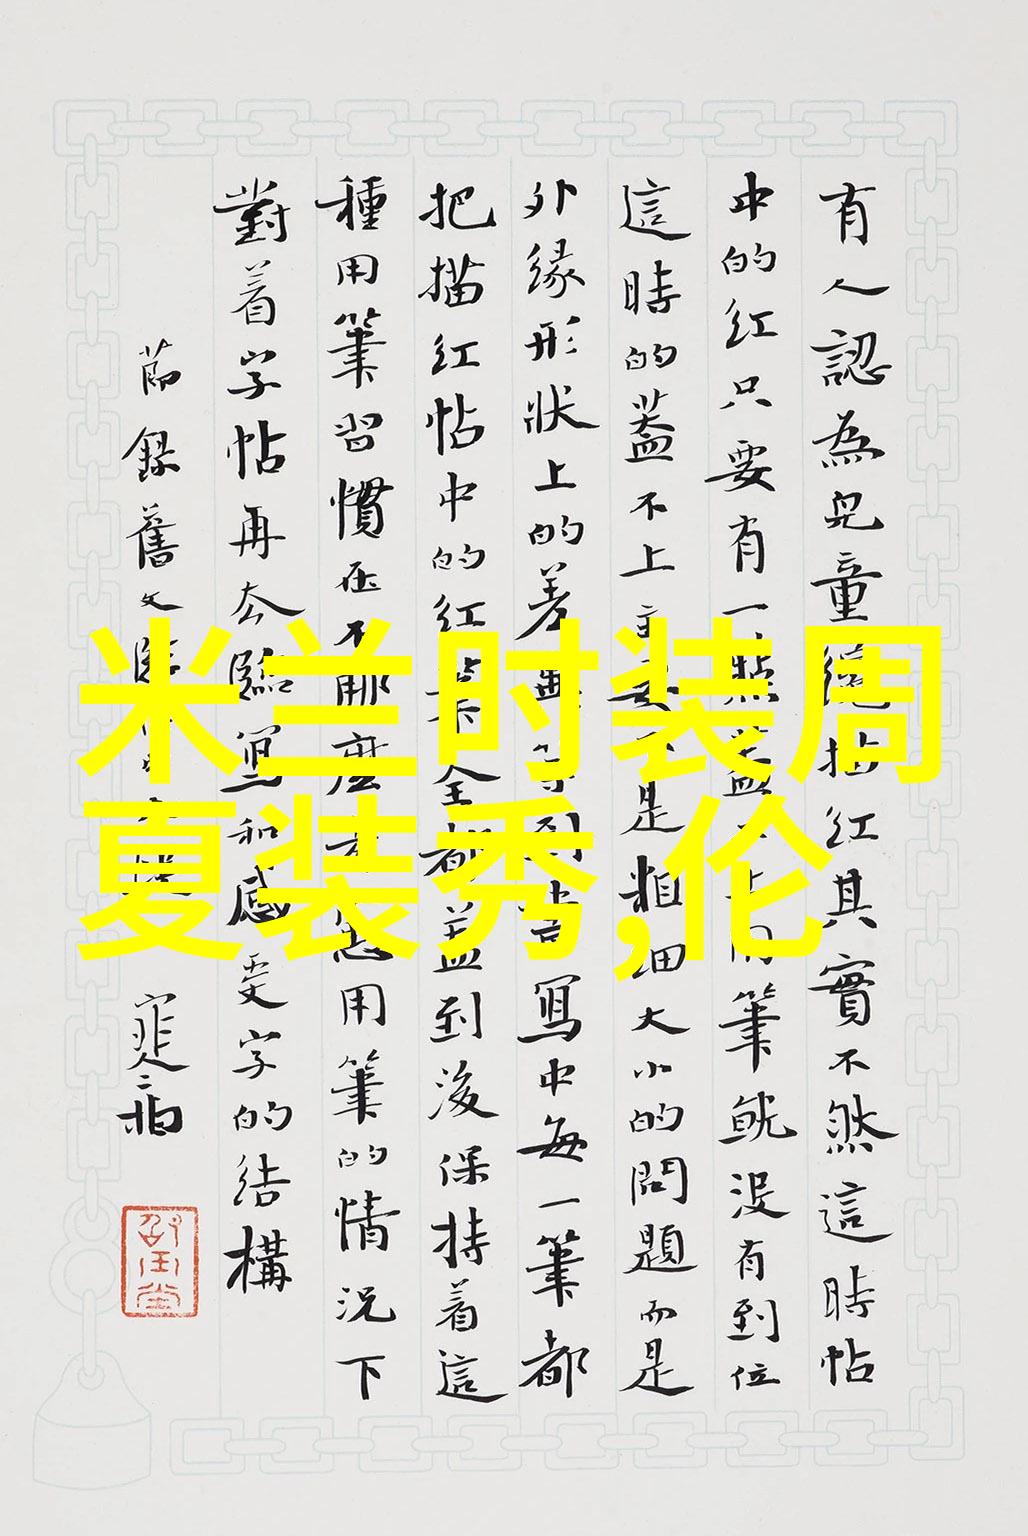 有人認為兒童描紅其實不然這時帖
中的紅只要有一點蓋用筆就沒有到位
這時的蓋不上主是粗細大小的問題而是
外緣形狀上的差到寫中每一筆都
把描紅帖中的紅筆全都蓋到後保持着這
種用筆習慣在不那麼用筆的情況下
對着字帖再去臨寫和感受字的結構
節錄舊文
米兰时装周
夏装秀,伦